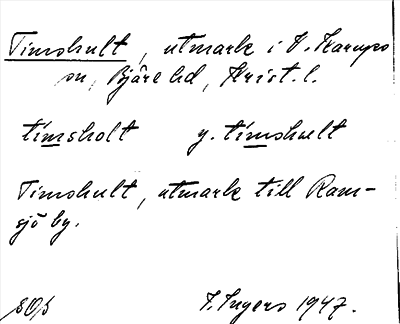 Timshult, utmark i V. Karups
sn, Bjäre hd, Krist. l.
timsholt y. timshult
Timshult, utmark till Ram-
sjö by.
I. Ingers 1947.